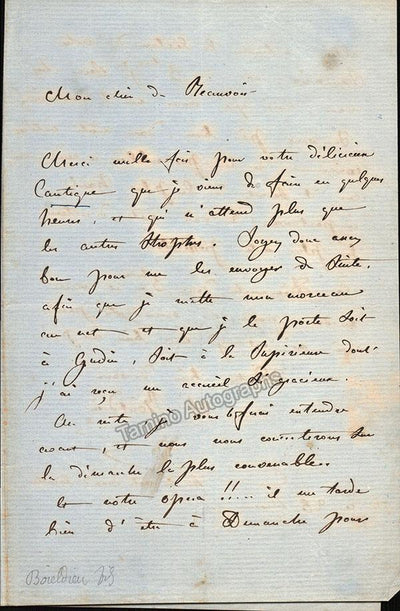 Mon cher de Beauvoir
Merci mille fois pour votre délicieux
Cantique que je viens de faire en quelques
heures, et qui n'attend plus que
les autres strophes. Soyez donc assez
bon pour me les envoyer de suite,
afin que je mette mon morceau
au net et que je le porte soit
à Gudin, soit à la Supérieure dont
j'ai reçu un accueil gracieux.
Tamino Autographs
Au reste je vous ferai entendre
avant, et nous nous concerterons sur
le dimanche le plus convenable.
Et notre opéra !!... il me tarde
bien d'être à Dimanche pour
Boieldieu fils